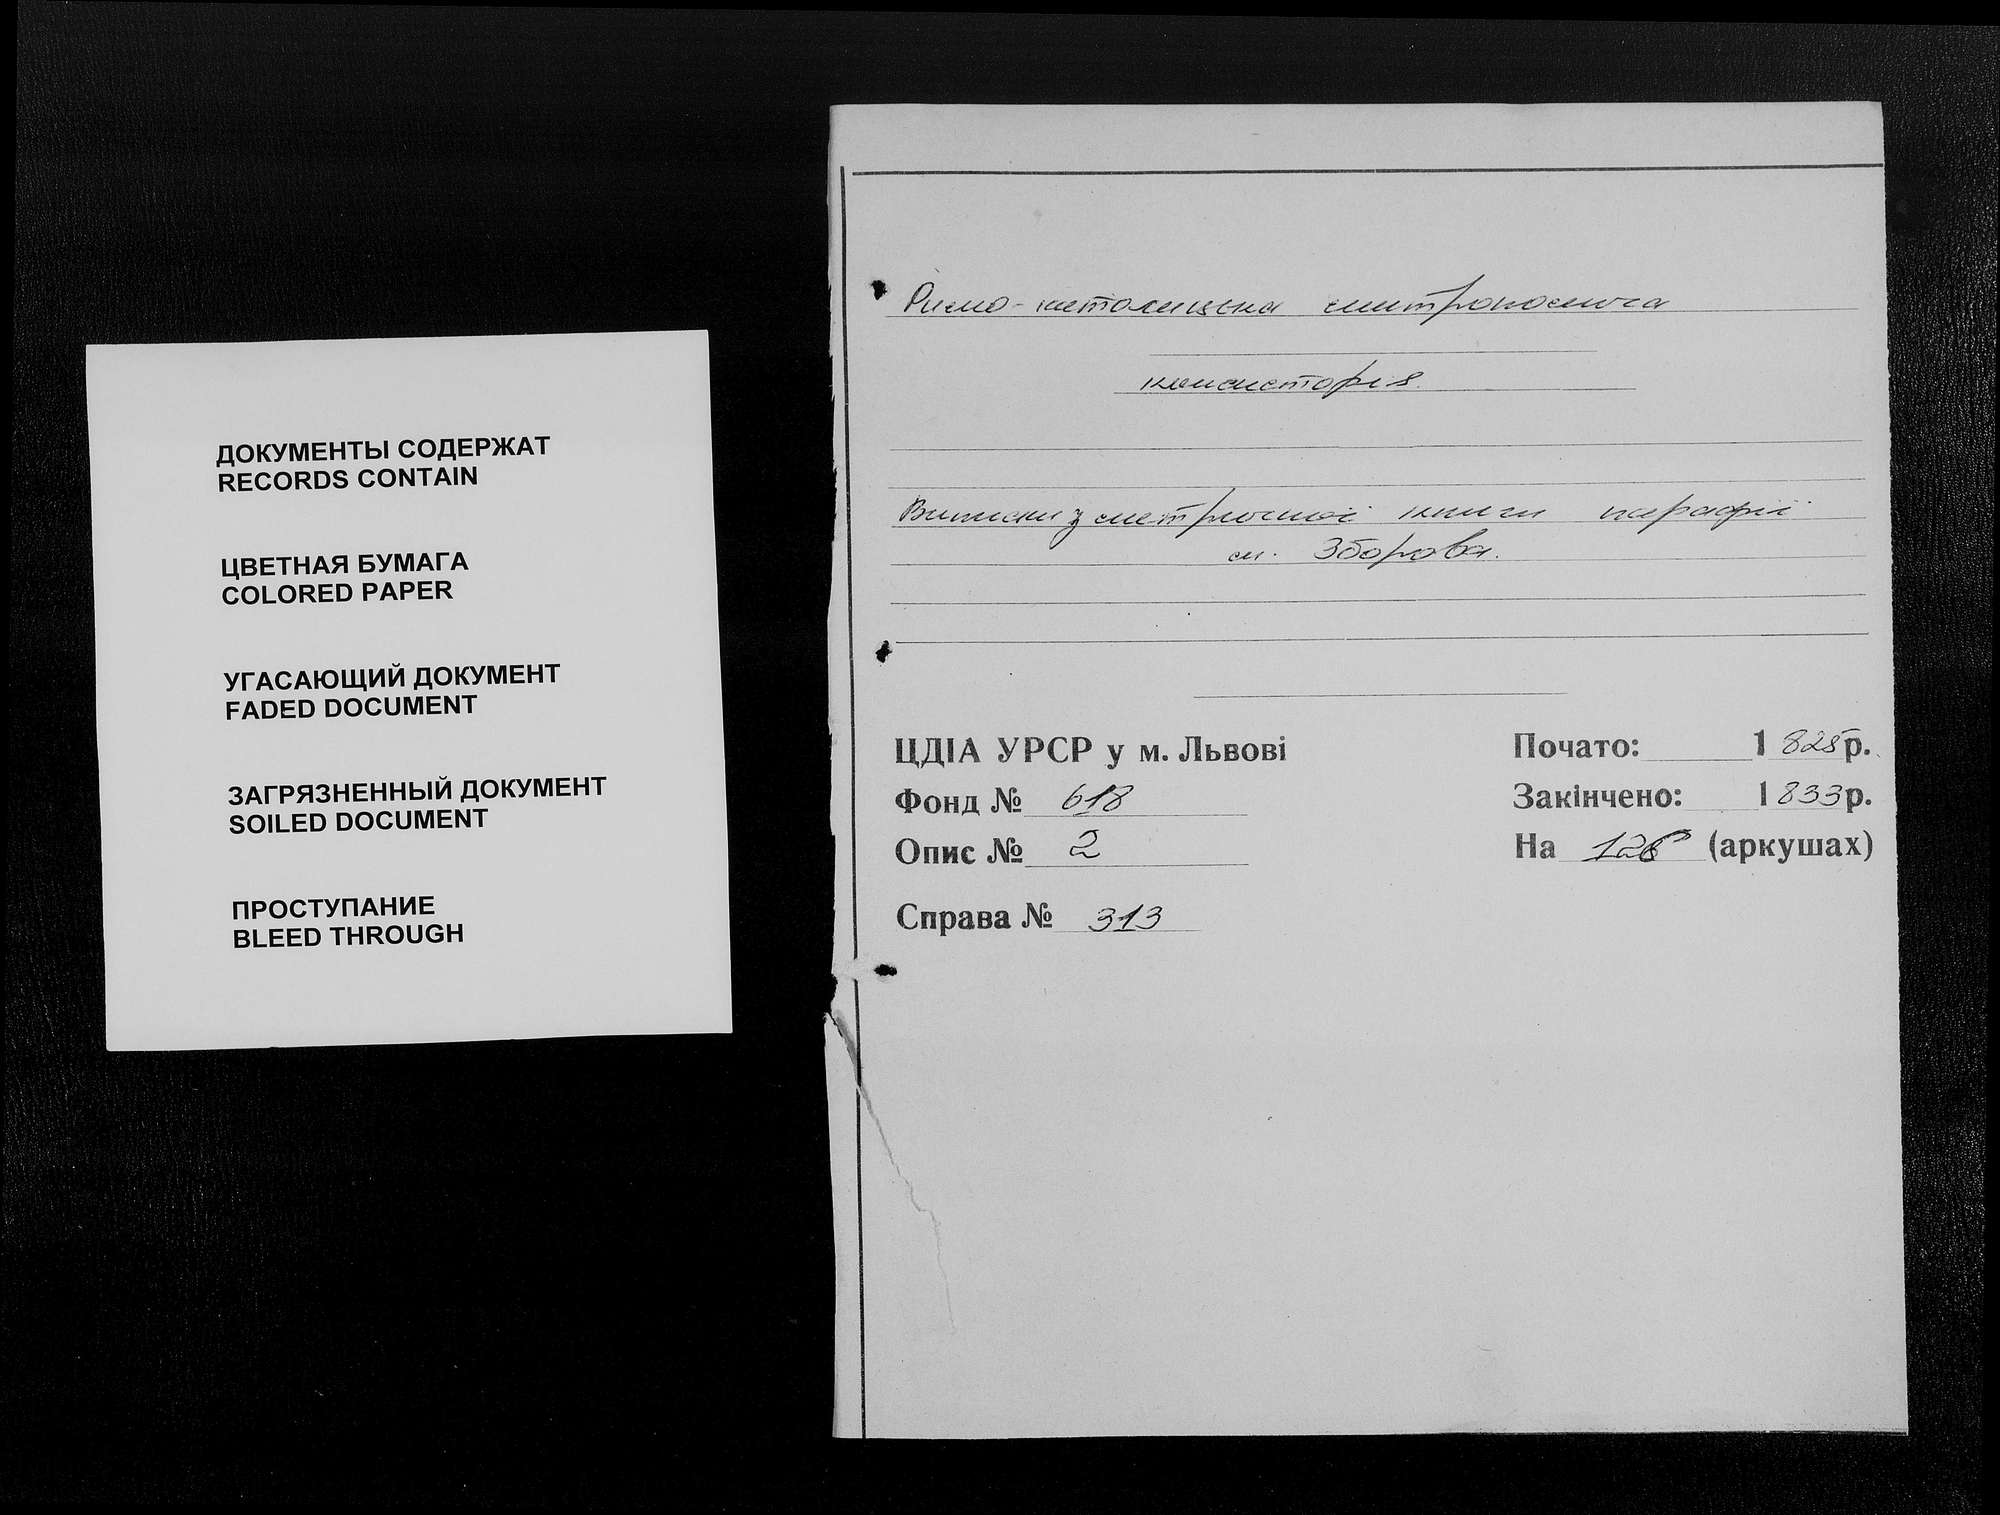 ДОКУМЕНТЫ СОДЕРЖАТ
RECORDS CONTAIN
ЦВЕТНАЯ БУМАГА
COLORED PAPER
УГАСАЮЩИЙ ДОКУМЕНТ
FADED DOCUMENT
ЗАГРЯЗНЕННЫЙ ДОКУМЕНТ
SOILED DOCUMENT
ПРОСТУПАНИЕ
BLEED THROUGH
Римо-католицька митрополича
консисторія.
Виписки з метричної книги парафії
м. Зборова.
ЦДІА УРСР у м. Львові
Фонд № 618
Опис № 2
Справа № 313
Почато: 1828 р.
Закінчено: 1833 р.
На (аркушах)